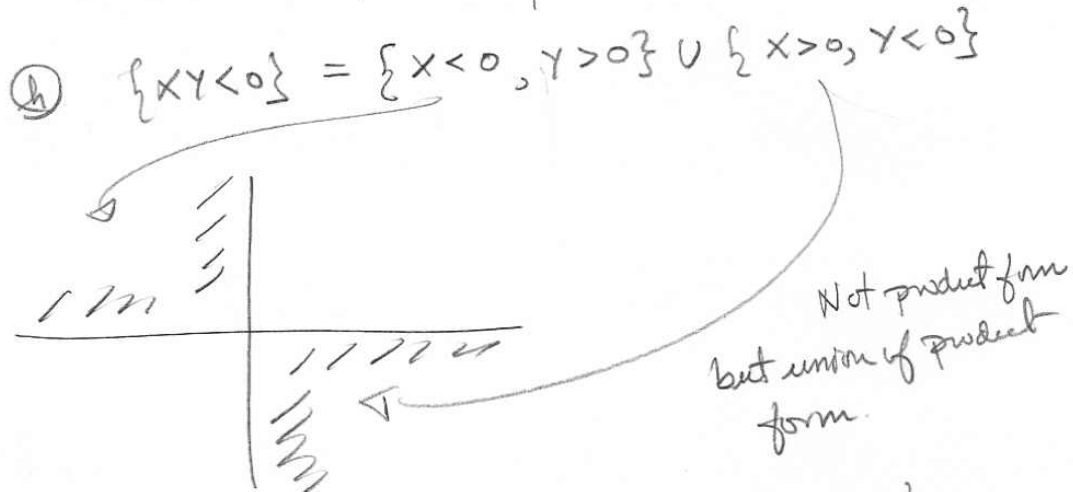 (h) {XY<0} = {X<0, Y>0} ∪ {X>0, Y<0}
Not product form
but union of product
form.